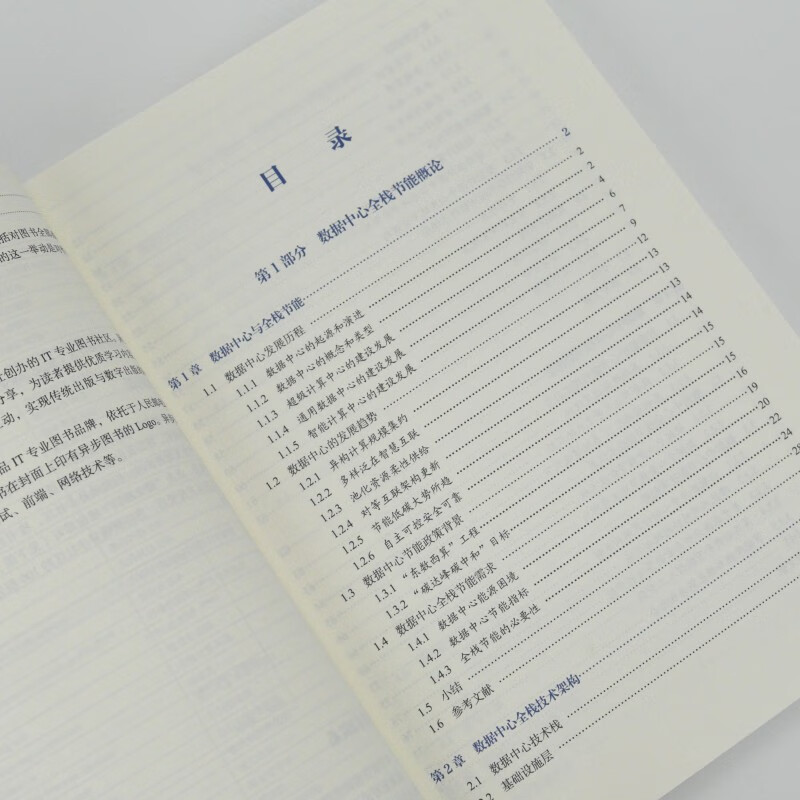 括对图书全
的这一举动是对
创办的 IT 专业图书社区,
分享,为读者提供优质学习内
动,实现传统出版与数字出版
品 IT 专业图书品牌,依托于人民
书在封面上印有异步图书的 Logo。
试、前端、网络技术等。
目 录
第 1 部分 数据中心全栈节能概论
第 1 章 数据中心与全栈节能 2
1.1 数据中心发展历程 2
1.1.1 数据中心的起源和演进 2
1.1.2 数据中心的概念和类型 4
1.1.3 超级计算中心的建设发展 6
1.1.4 通用数据中心的建设发展 7
1.1.5 智能计算中心的建设发展 9
1.2 数据中心的发展趋势 12
1.2.1 异构计算规模集约 13
1.2.2 多样泛在智慧互联 13
1.2.3 池化资源柔性供给 13
1.2.4 对等互联架构更新 14
1.2.5 节能低碳大势所趋 14
1.2.6 自主可控安全可靠 15
1.3 数据中心节能政策背景 15
1.3.1 “东数西算”工程 15
1.3.2 “碳达峰碳中和”目标 16
1.4 数据中心全栈节能需求 19
1.4.1 数据中心能源困境 20
1.4.2 数据中心节能指标 22
1.4.3 全栈节能的必要性 24
1.5 小结
1.6 参考文献
第 2 章 数据中心全栈技术架构
2.1 数据中心技术栈
2.2 基础设施层